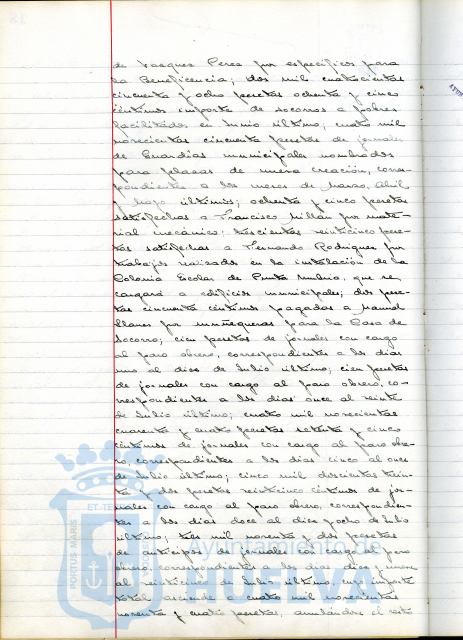 de Vazquez Perez por específicos para
la Beneficencia; dos mil cuatrocientas
cincuenta y ocho pesetas ochenta y cinco
céntimos importe de socorros a pobres
facilitados en Junio último; cuatro mil
novecientas cincuenta pesetas de jornales
de Guardias municipales nombrados
para plazas de nueva creación, corres-
pondientes a los meses de Marzo, Abril
y Mayo últimos; ochenta y cinco pesetas
satisfechas a Francisco Millán por mate-
rial mecánico; trescientas veinticinco pese-
tas satisfechas a Fernando Rodriguez por
trabajos realizados en la instalación de la
Colonia Escolar de Punta Umbria, que se
cargará a edificios municipales; dos pese-
tas cincuenta céntimos pagados a Manuel
Llanes por muñequeras para la Casa de
Socorro; cien pesetas de jornales con cargo
al paro obrero, correspondientes a los dias
uno al diez de Julio último; cien pesetas
de jornales con cargo al paro obrero, co-
rrespondientes a los dias once al veinte
de Julio último; cuatro mil novecientas
cuarenta y cuatro pesetas setenta y cinco
céntimos de jornales con cargo al paro obre-
ro, correspondientes a los dias cinco al once
de Julio último; cinco mil doscientas trein-
ta y dos pesetas veinticinco céntimos de jor-
nales con cargo al paro obrero, correspondien-
tes a los dias doce al diez y ocho de Julio
último; tres mil noventa y dos pesetas
de anticipos de jornales con cargo al paro
obrero, correspondientes a los dias diez y nueve
al veinticinco de Julio último, cuyo importe
total asciende a cuatro mil novecientas
noventa y cuatro pesetas, anulándose el resto
PORTUS MARIS
ET TE
Ayuntamiento de
HUELVA